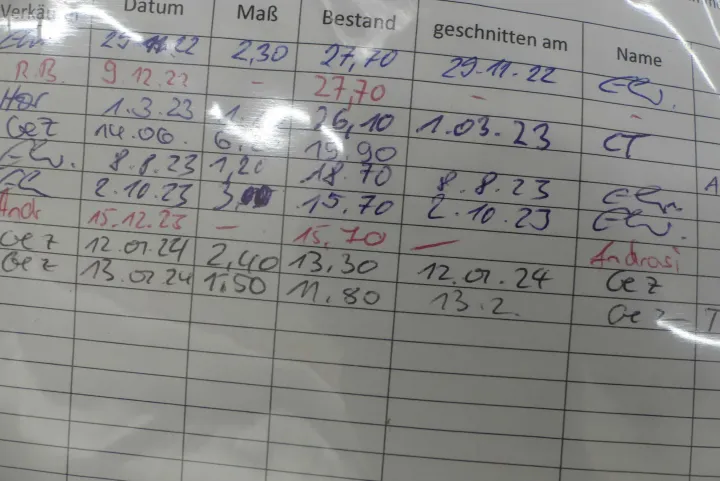 Verkä Datum Maß Bestand geschnitten am Name
29.11.22 2,30 27,70 29.11.22
R.B 9.12.22 – 27,70 – –
Har 1.3.23 26,10 1.03.23 CT
Gez 14.06. 19.90
8.8.23 1,20 18.70 8.8.23
2.10.23 3,00 15.70 2.10.23
Andr 15.12.23 – 15,70 – Andrasi
Gez 12.01.24 2,40 13,30 12.01.24 Gez
Gez 13.02.24 1.50 11.80 13.2. Gez